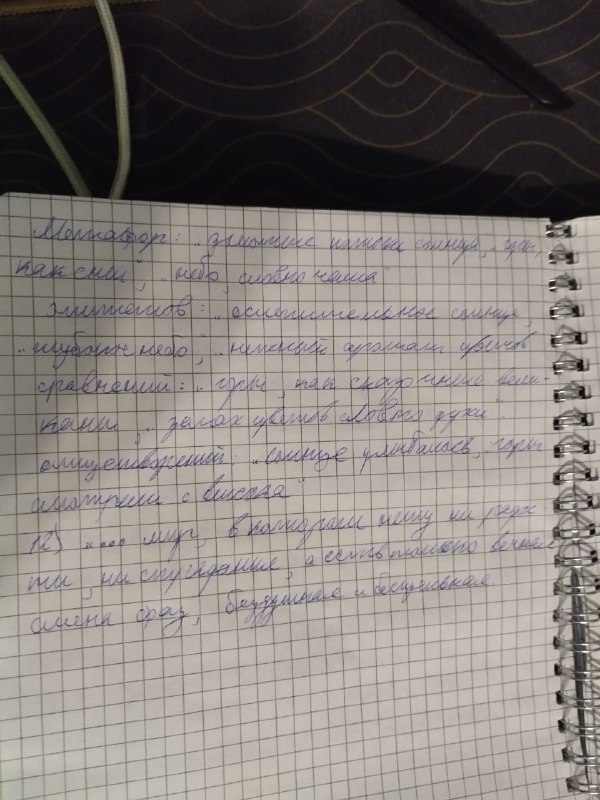 Метафор: „дымчатые потоки солнца", „горы,
как змеи", „небо, словно чаша"
эпитетов: „ослепительное солнце",
„глубокое небо", „нежный аромат цветов
сравнений: „горы, как сказочные вели-
каны", „запах цветов словно духи"
олицетворений: „солнце улыбалось, горы
смотрели с высока"
12) „... мир, в котором нету ни радос
ти, ни страдания, а есть только вечная
смена фаз, бездушная и бесцельная.